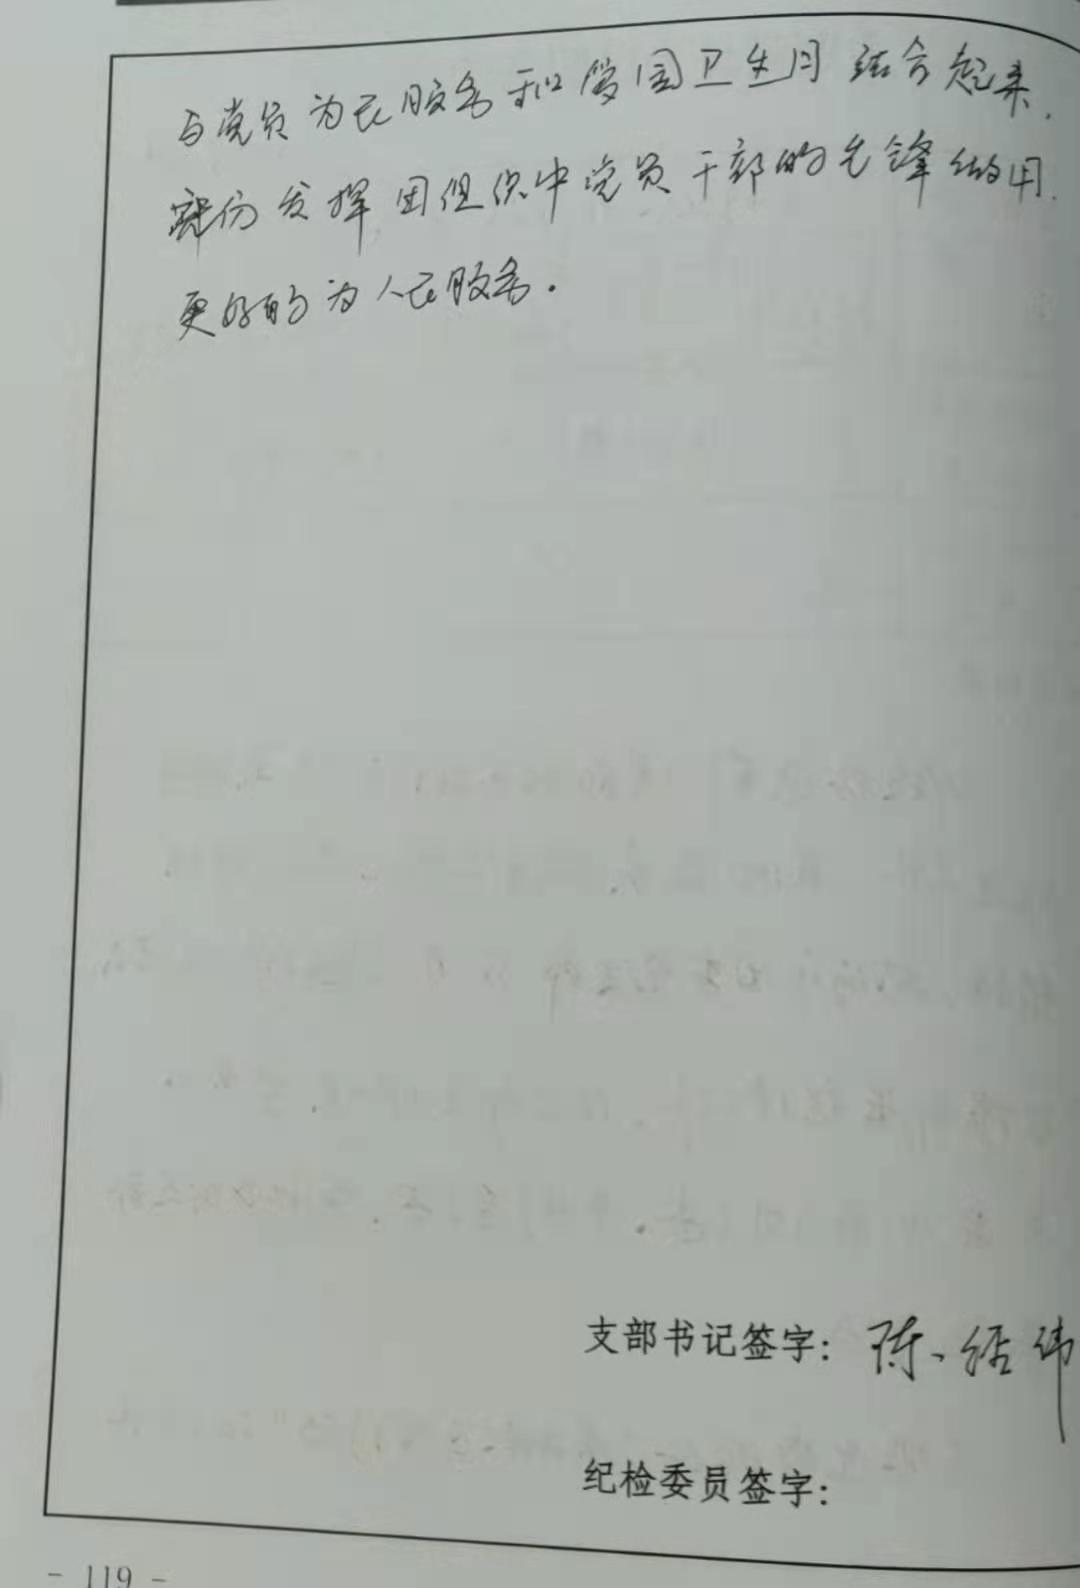 与党员为民服务和爱国卫生月结合起来.
发挥团组织中党员干部的先锋做用.
更好的为人民服务.
支部书记签字: 陈经纬
纪检委员签字:
- 119 -